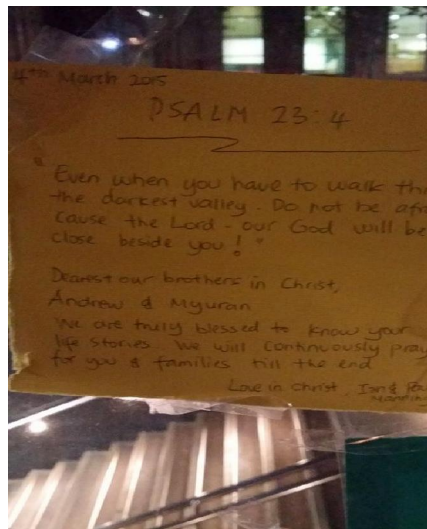 4th March 2015
PSALM 23:4
"Even when you have to walk th
the darkest valley. Do not be afr
cause the Lord - our God will be
close beside you! "
Dearest our brothers in Christ,
Andrew & Myuran
We are truly blessed to know your
life stories. We will continuously pray
for you & families till the end
Love in Christ,